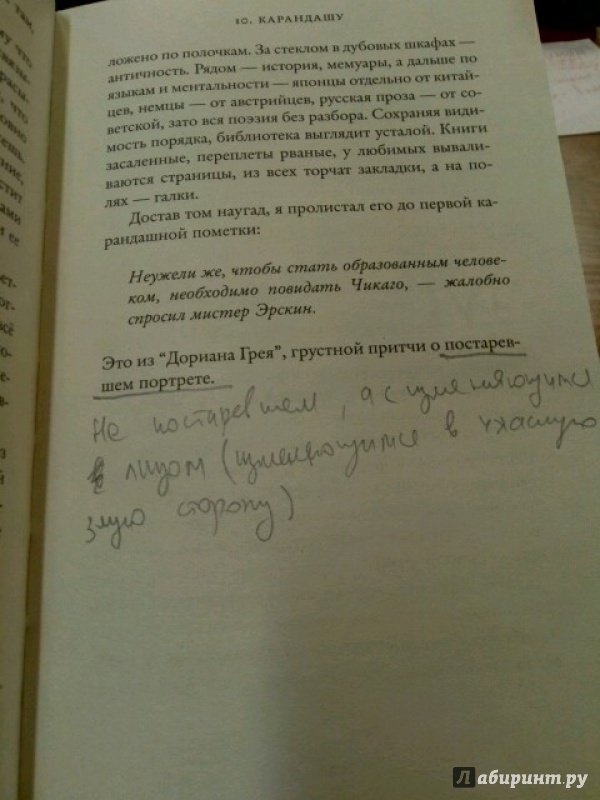 10. КАРАНДАШУ
ложено по полочкам. За стеклом в дубовых шкафах —
античность. Рядом — история, мемуары, а дальше по
языкам и ментальности — японцы отдельно от китай-
цев, немцы — от австрийцев, русская проза — от со-
ветской, зато вся поэзия без разбора. Сохраняя види-
мость порядка, библиотека выглядит усталой. Книги
засаленные, переплеты рваные, у любимых вывали-
ваются страницы, из всех торчат закладки, а на по-
лях — галки.
Достав том наугад, я пролистал его до первой ка-
рандашной пометки:
Неужели же, чтобы стать образованным челове-
ком, необходимо повидать Чикаго, — жалобно
спросил мистер Эрскин.
Это из “Дориана Грея”, грустной притчи о постарев-
шем портрете.
Не постаревшем, а с изменяющимся
лицом (изменяющимся в ужасную
злую сторону)
Лабиринт.ру